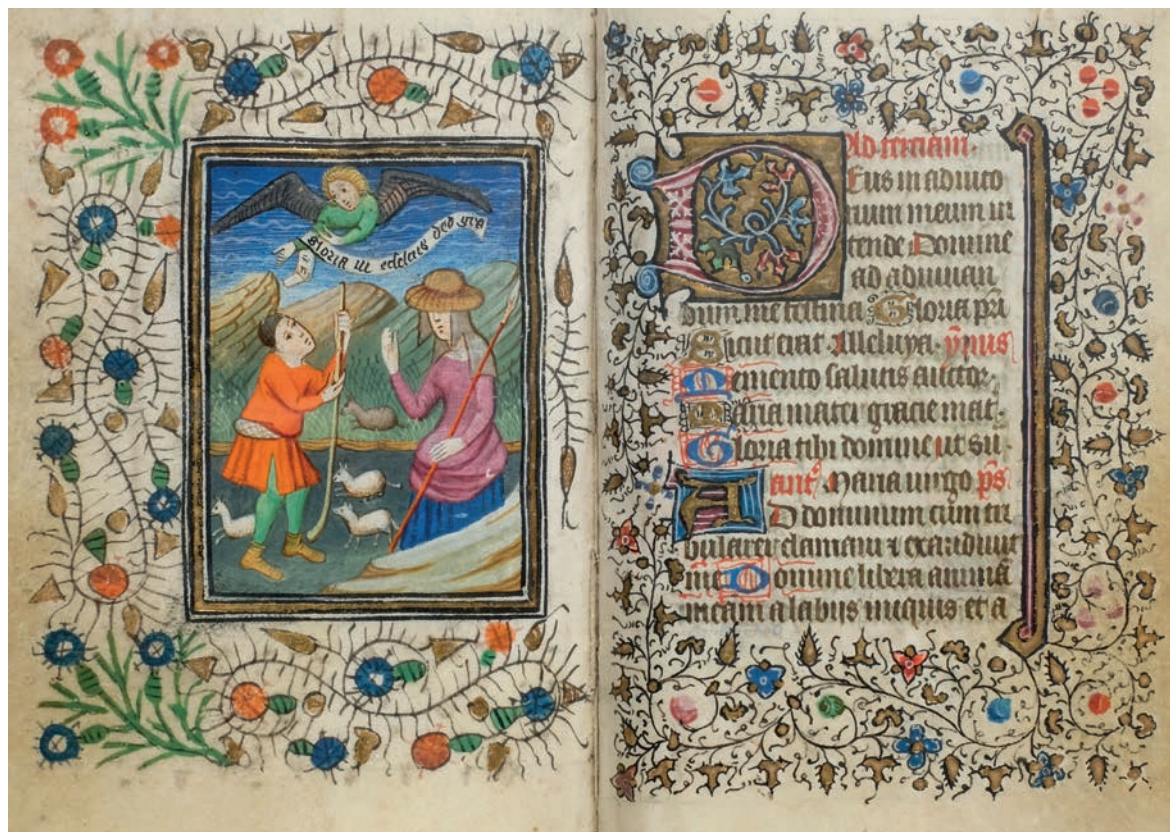 gloria in excelcis deo
Ad terciam.
Eus in adiuto
rium meum in
tende Domine
ad adiuuan
dum me festina Gloria pri
Sicut erat Alleluya. ymus
Memento salutis auctor.
Maria mater gracie mat.
Gloria tibi domine ut su.
ant. Maria uirgo ps
AD dominum cum tri
bularer clamaui ⁊ exaudiuit
me Domine libera animā
meam a labijs iniquis et a